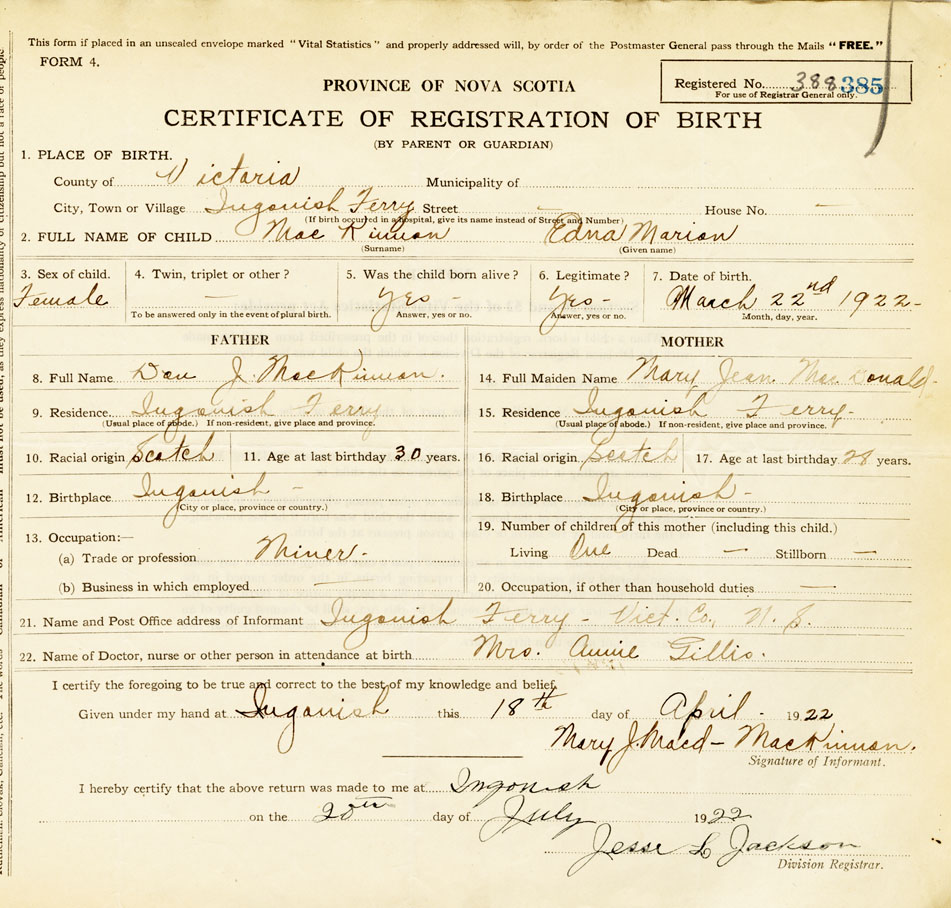 This form if placed in an unsealed envelope marked "Vital Statistics" and properly addressed will, by order of the Postmaster General pass through the Mails "FREE."
FORM 4.
Registered No. 388 385
For use of Registrar General only.
PROVINCE OF NOVA SCOTIA
CERTIFICATE OF REGISTRATION OF BIRTH
(BY PARENT OR GUARDIAN)
1. PLACE OF BIRTH.
County of Victoria Municipality of
City, Town or Village Ingonish Ferry Street — House No. —
(If birth occurred in a hospital, give its name instead of Street and Number)
2. FULL NAME OF CHILD Mac Kinnon Edna Marion
(Surname) (Given name)
3. Sex of child. 4. Twin, triplet or other? 5. Was the child born alive? 6. Legitimate? 7. Date of birth.
Female — Yes - Yes - March 22nd 1922-
To be answered only in the event of plural birth. Answer, yes or no. Answer, yes or no. Month, day, year.
FATHER MOTHER
8. Full Name Dan J. MacKinnon. 14. Full Maiden Name Mary Jean Mac Donald-
9. Residence. Ingonish Ferry 15. Residence Ingonish Ferry-
(Usual place of abode.) If non-resident, give place and province. (Usual place of abode.) If non-resident, give place and province.
10. Racial origin Scotch 11. Age at last birthday 30 years. 16. Racial origin Scotch 17. Age at last birthday 28 years.
12. Birthplace Ingonish - 18. Birthplace Ingonish -
(City or place, province or country.) (City or place, province or country.)
13. Occupation:— 19. Number of children of this mother (including this child.)
(a) Trade or profession Miner. Living One Dead — Stillborn —
(b) Business in which employed — 20. Occupation, if other than household duties —
21. Name and Post Office address of Informant Ingonish Ferry - Vict. Co., N. S.
22. Name of Doctor, nurse or other person in attendance at birth Mrs. Annie Gillis.
I certify the foregoing to be true and correct to the best of my knowledge and belief.
Given under my hand at Ingonish this 18th day of April - 1922
Mary J. Macd- MacKinnon.
Signature of Informant.
I hereby certify that the above return was made to me at Ingonish
on the 20th day of July 1922
Jesse L Jackson
Division Registrar.